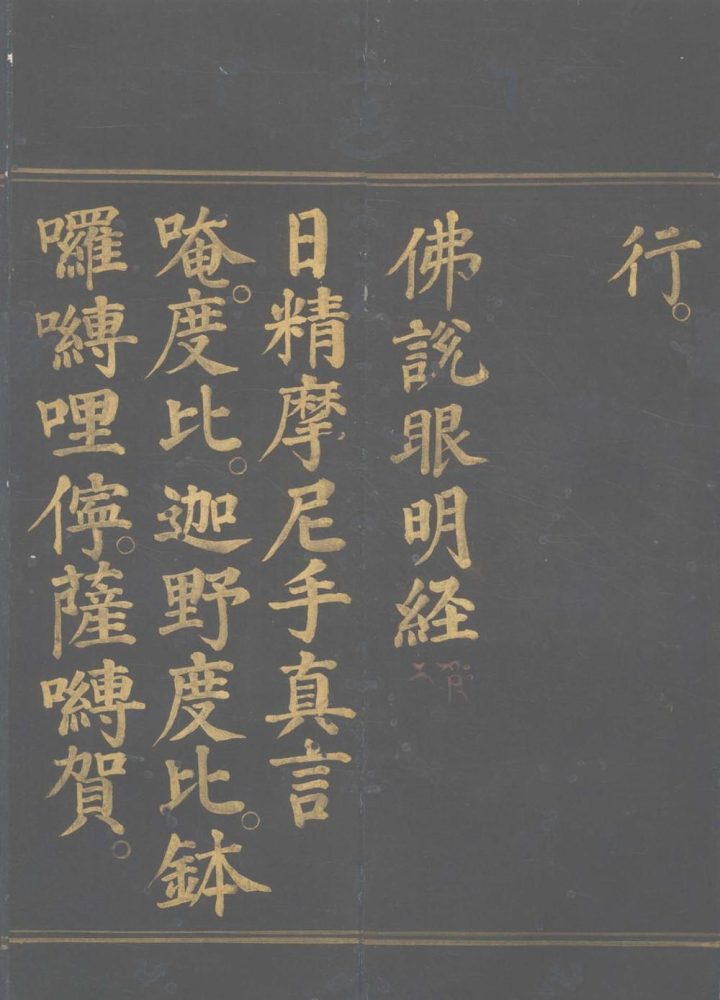 行。
佛說眼明経
日精摩尼手真言
唵。度比。迦野度比。鉢
囉嚩哩儜。薩嚩賀。